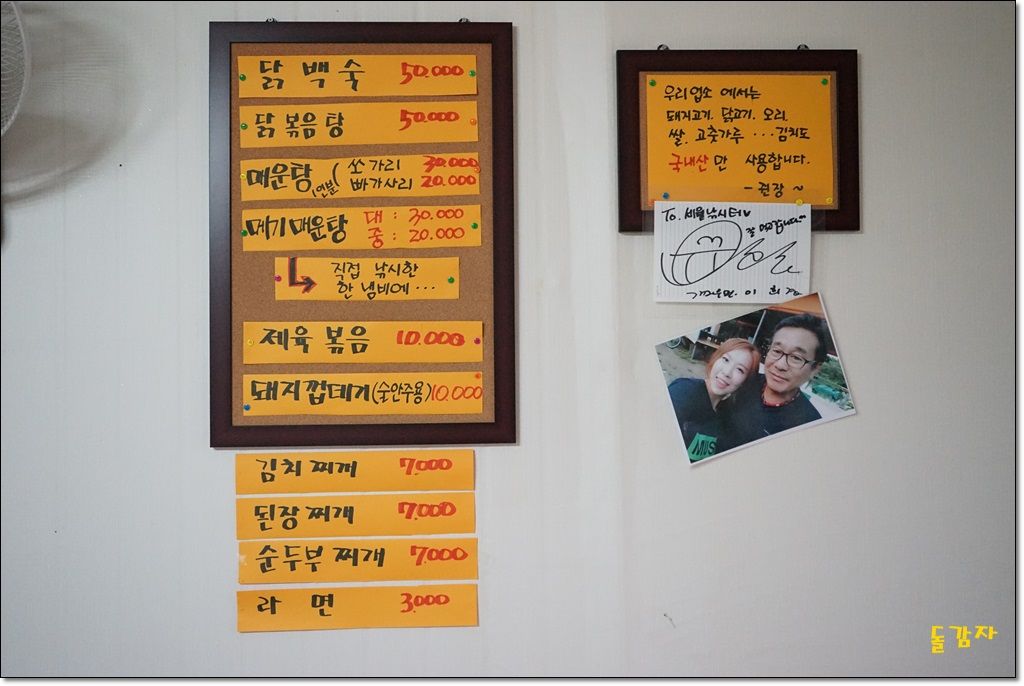 닭 백 숙 50.000
닭 볶음 탕 50.000
매운탕 1인분 ( 쏘 가리 30.000
빠가사리 20.000
메기 매운탕 대 : 30.000
중 : 20.000
직접 낚시한
한 냄비에 ...
제육 볶음 10.000
돼지껍데기 (술안주용) 10.000
김치 찌개 7.000
된장 찌개 7.000
순두부 찌개 7.000
라 면 3.000
우리업소 에서는
돼지고기. 닭고기. 오리.
쌀. 고춧가루 ... 김치도
국내산 만 사용합니다.
- 쥔장 ~
To. 세월낚시터
잘 먹고갑니다
MUS
돌감자